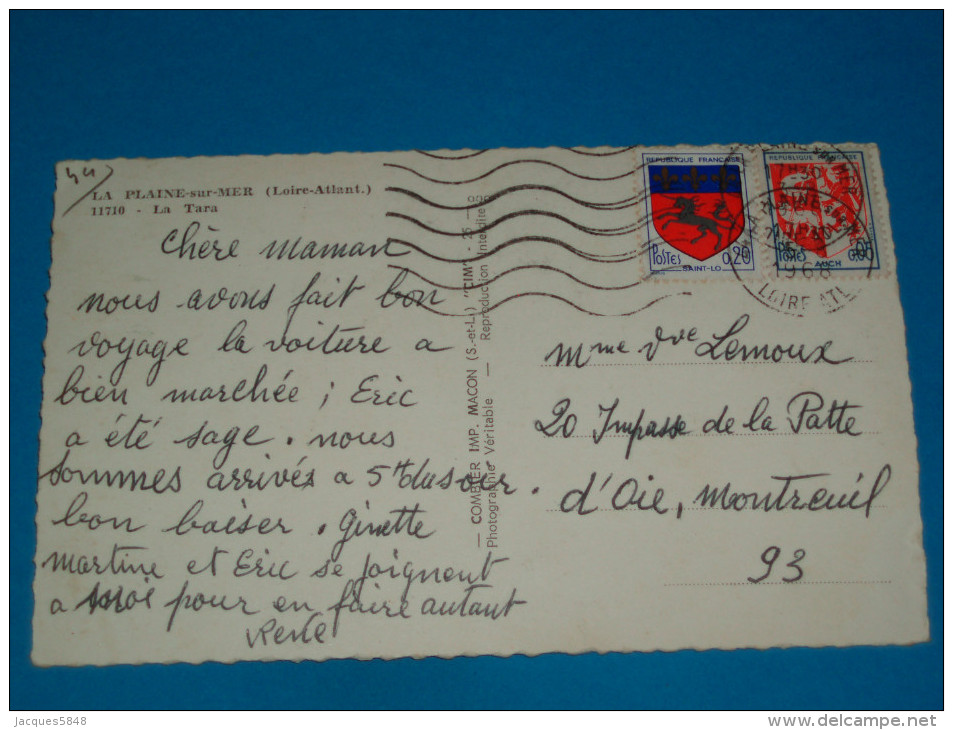 44
LA PLAINE-sur-MER (Loire-Atlant.)
11710 - La Tara
Chère Maman
nous avons fait bon
voyage la voiture a
bien marchée ; Eric
a été sage . nous
sommes arrivés a 5H du soir .
bon baiser . Ginette
martine et Eric se joignent
a moi pour en faire autant
René
— COMBIER IMP. MACON (S.-et-L.) "CIM" - 26 — ano
Photographie Véritable — Reproduction Interdite
REPUBLIQUE FRANÇAISE
POSTES 0,20
SAINT-LO
REPUBLIQUE FRANÇAISE
POSTES 0,05
AUCH
1968
LOIRE ATL
Mme Vve Lemoux
20 Impasse de la Patte
d'Oie, Montreuil
93
Jacques5848
delcampe.net